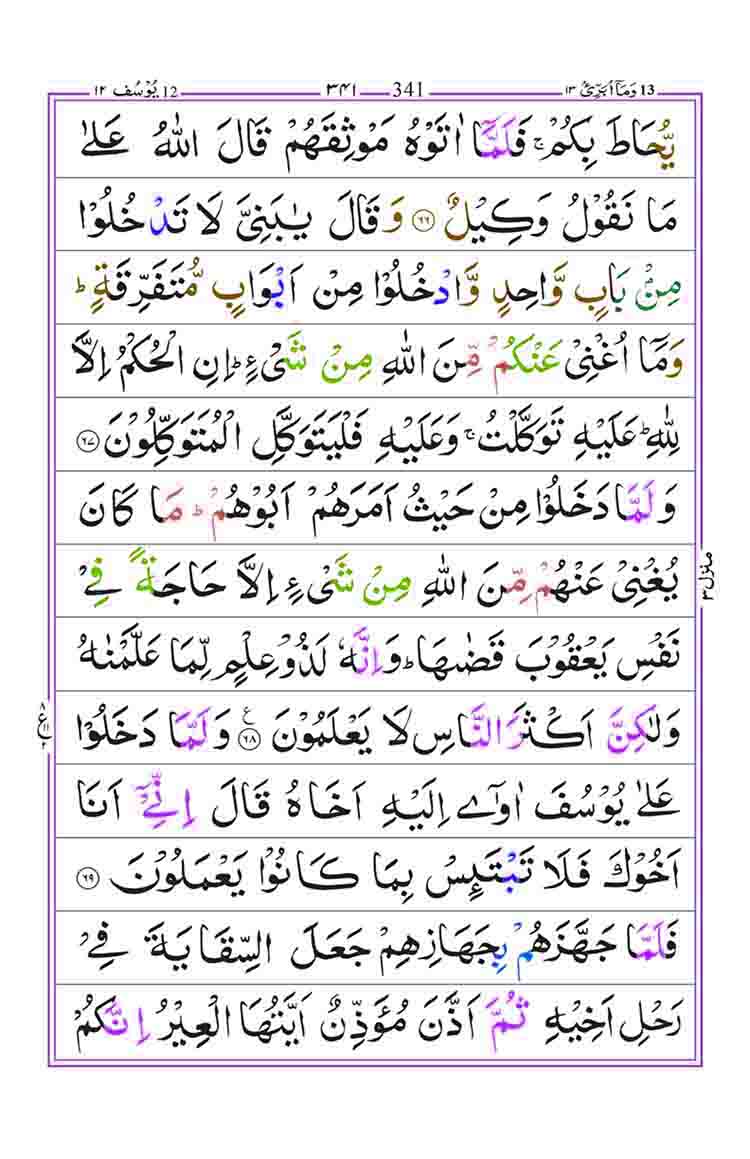 13 وَمَاۤ اُبَرِّئُ ۱۳ 341 ۳۴۱ 12 یُوْسُف ۱۲
یُّحَاطَ بِكُمْ ۚ فَلَمَّاۤ اٰتَوْهُ مَوْثِقَهُمْ قَالَ اللّٰهُ عَلٰی
مَا نَقُوْلُ وَكِیْلٌ ۶۶ وَ قَالَ یٰبَنِیَّ لَا تَدْخُلُوْا
مِنْۢ بَابٍ وَّاحِدٍ وَّادْخُلُوْا مِنْ اَبْوَابٍ مُّتَفَرِّقَةٍ ؕ
وَمَاۤ اُغْنِیْ عَنْكُمْ مِّنَ اللّٰهِ مِنْ شَیْءٍ ؕ اِنِ الْحُكْمُ اِلَّا
لِلّٰهِ ؕ عَلَیْهِ تَوَكَّلْتُ ۚ وَعَلَیْهِ فَلْیَتَوَكَّلِ الْمُتَوَكِّلُوْنَ ۶۷
وَلَمَّا دَخَلُوْا مِنْ حَیْثُ اَمَرَهُمْ اَبُوْهُمْ ؕ مَا كَانَ
یُغْنِیْ عَنْهُمْ مِّنَ اللّٰهِ مِنْ شَیْءٍ اِلَّا حَاجَةً فِیْ
نَفْسِ یَعْقُوْبَ قَضٰىهَا ؕ وَاِنَّهٗ لَذُوْ عِلْمٍ لِّمَا عَلَّمْنٰهُ
وَلٰكِنَّ اَكْثَرَ النَّاسِ لَا یَعْلَمُوْنَ ۶۸ ع وَلَمَّا دَخَلُوْا
عَلٰی یُوْسُفَ اٰوٰۤی اِلَیْهِ اَخَاهُ قَالَ اِنِّیْۤ اَنَا
اَخُوْكَ فَلَا تَبْتَىِٕسْ بِمَا كَانُوْا یَعْمَلُوْنَ ۶۹
فَلَمَّا جَهَّزَهُمْ بِجَهَازِهِمْ جَعَلَ السِّقَایَةَ فِیْ
رَحْلِ اَخِیْهِ ثُمَّ اَذَّنَ مُؤَذِّنٌ اَیَّتُهَا الْعِیْرُ اِنَّكُمْ
منزل ۳
ع